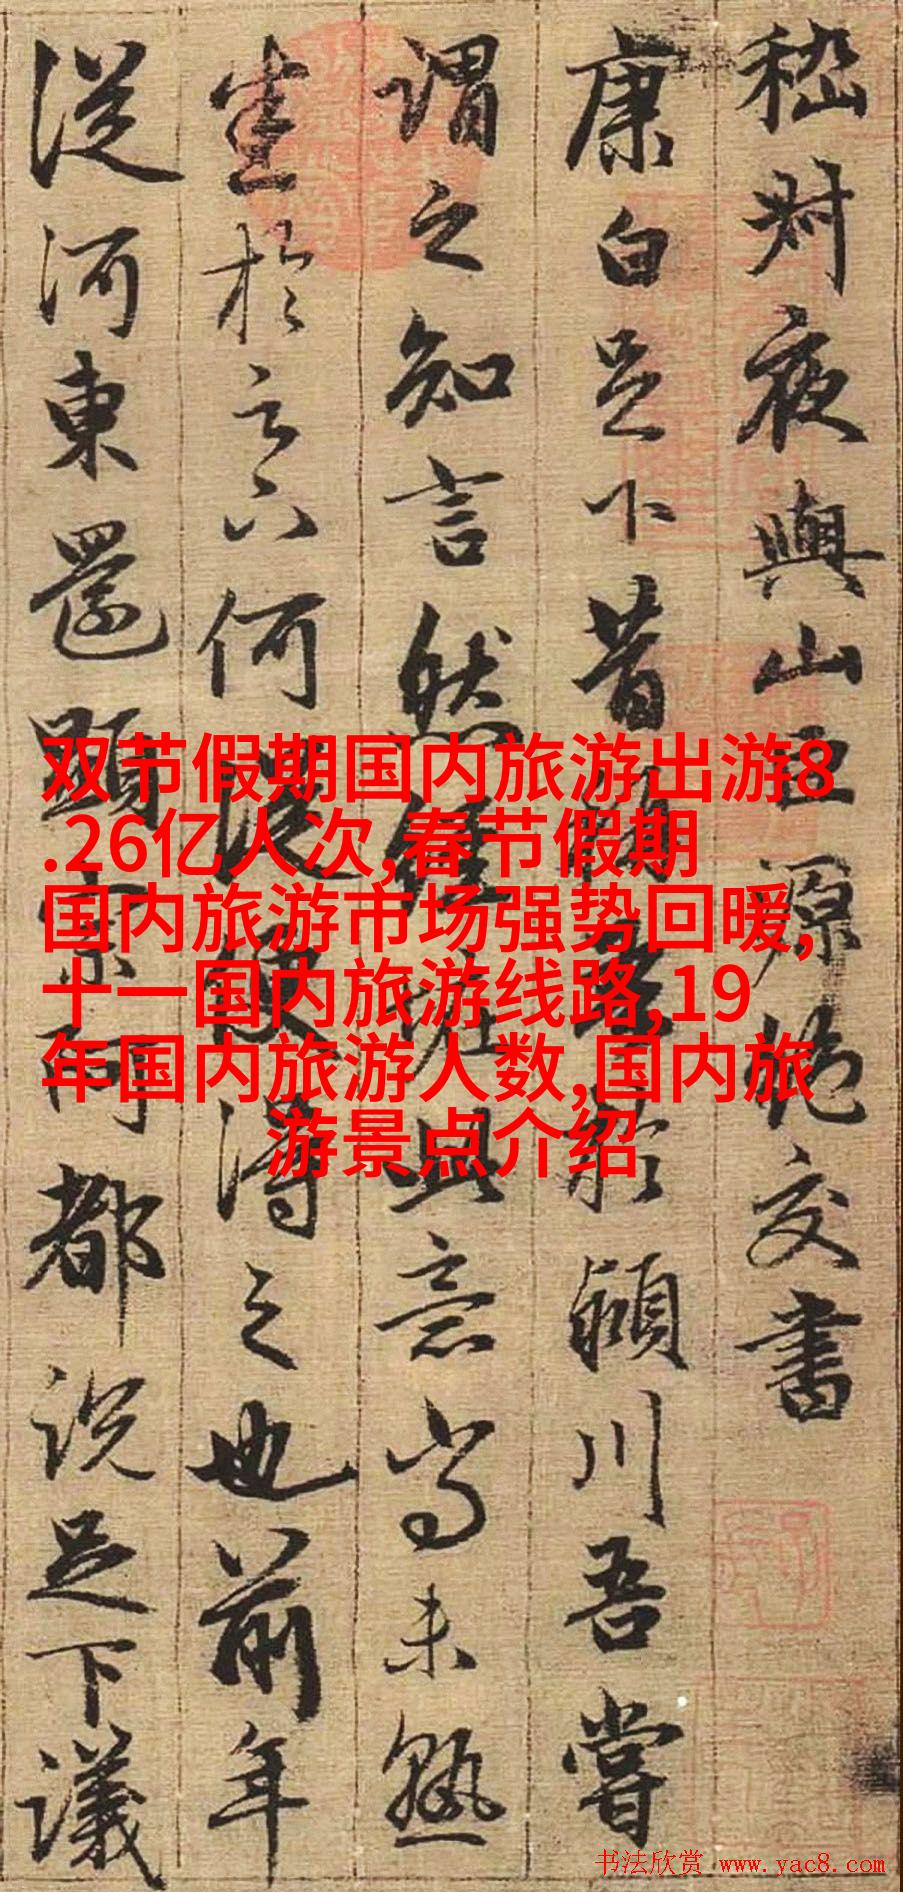 嵇叔夜與山巨源絕交書
康白足下昔稱吾於潁川吾嘗
謂之知言然經怪此意尚未熟
悉於足下何從便得之也前年
從河東還顯宗阿都說足下議
双节假期国内旅游出游8
.26亿人次,春节假期
国内旅游市场强势回暖,
十一国内旅游线路,19
年国内旅游人数,国内旅
游景点介绍
书法欣赏 www.yac8.com